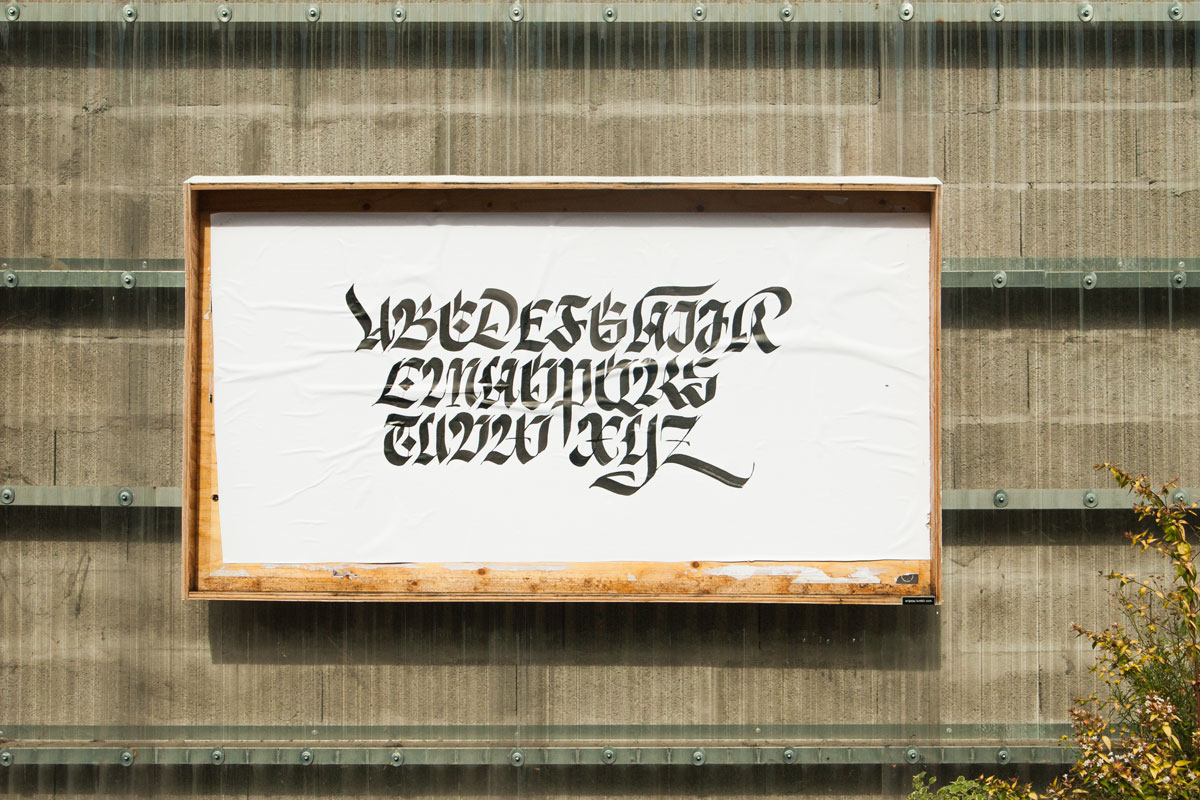 ABCDEFGHIJK
LMNOPQRS
TUVW XYZ